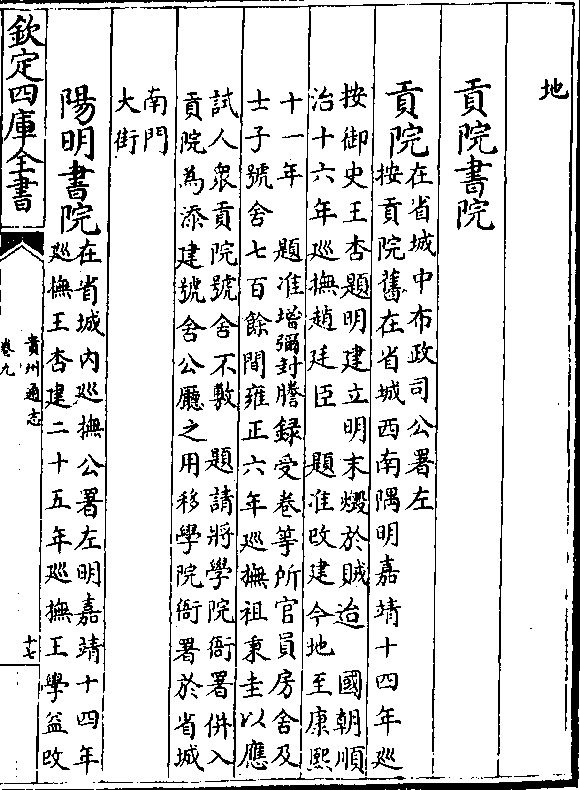 地
貢院書院
貢院在省城中布政司公署左
按貢院舊在省城西南隅明嘉靖十四年巡
按御史王杏題明建立明末燬於賊迨　國朝順
治十六年巡撫趙廷臣　題准改建今地至康熙
十一年　題准增彌封謄録受卷等所官員房舍及
士子號舍七百餘間雍正六年巡撫祖秉圭以應
試人衆貢院號舍不敷　題請將學院衙署併入
貢院為添建號舍公廳之用移學院衙署於省城
南門
大街
陽明書院在省城內巡撫公署左明嘉靖十四年
巡撫王杏建二十五年巡撫王學益改
欽定四庫全書
貴州通志
卷九
十七